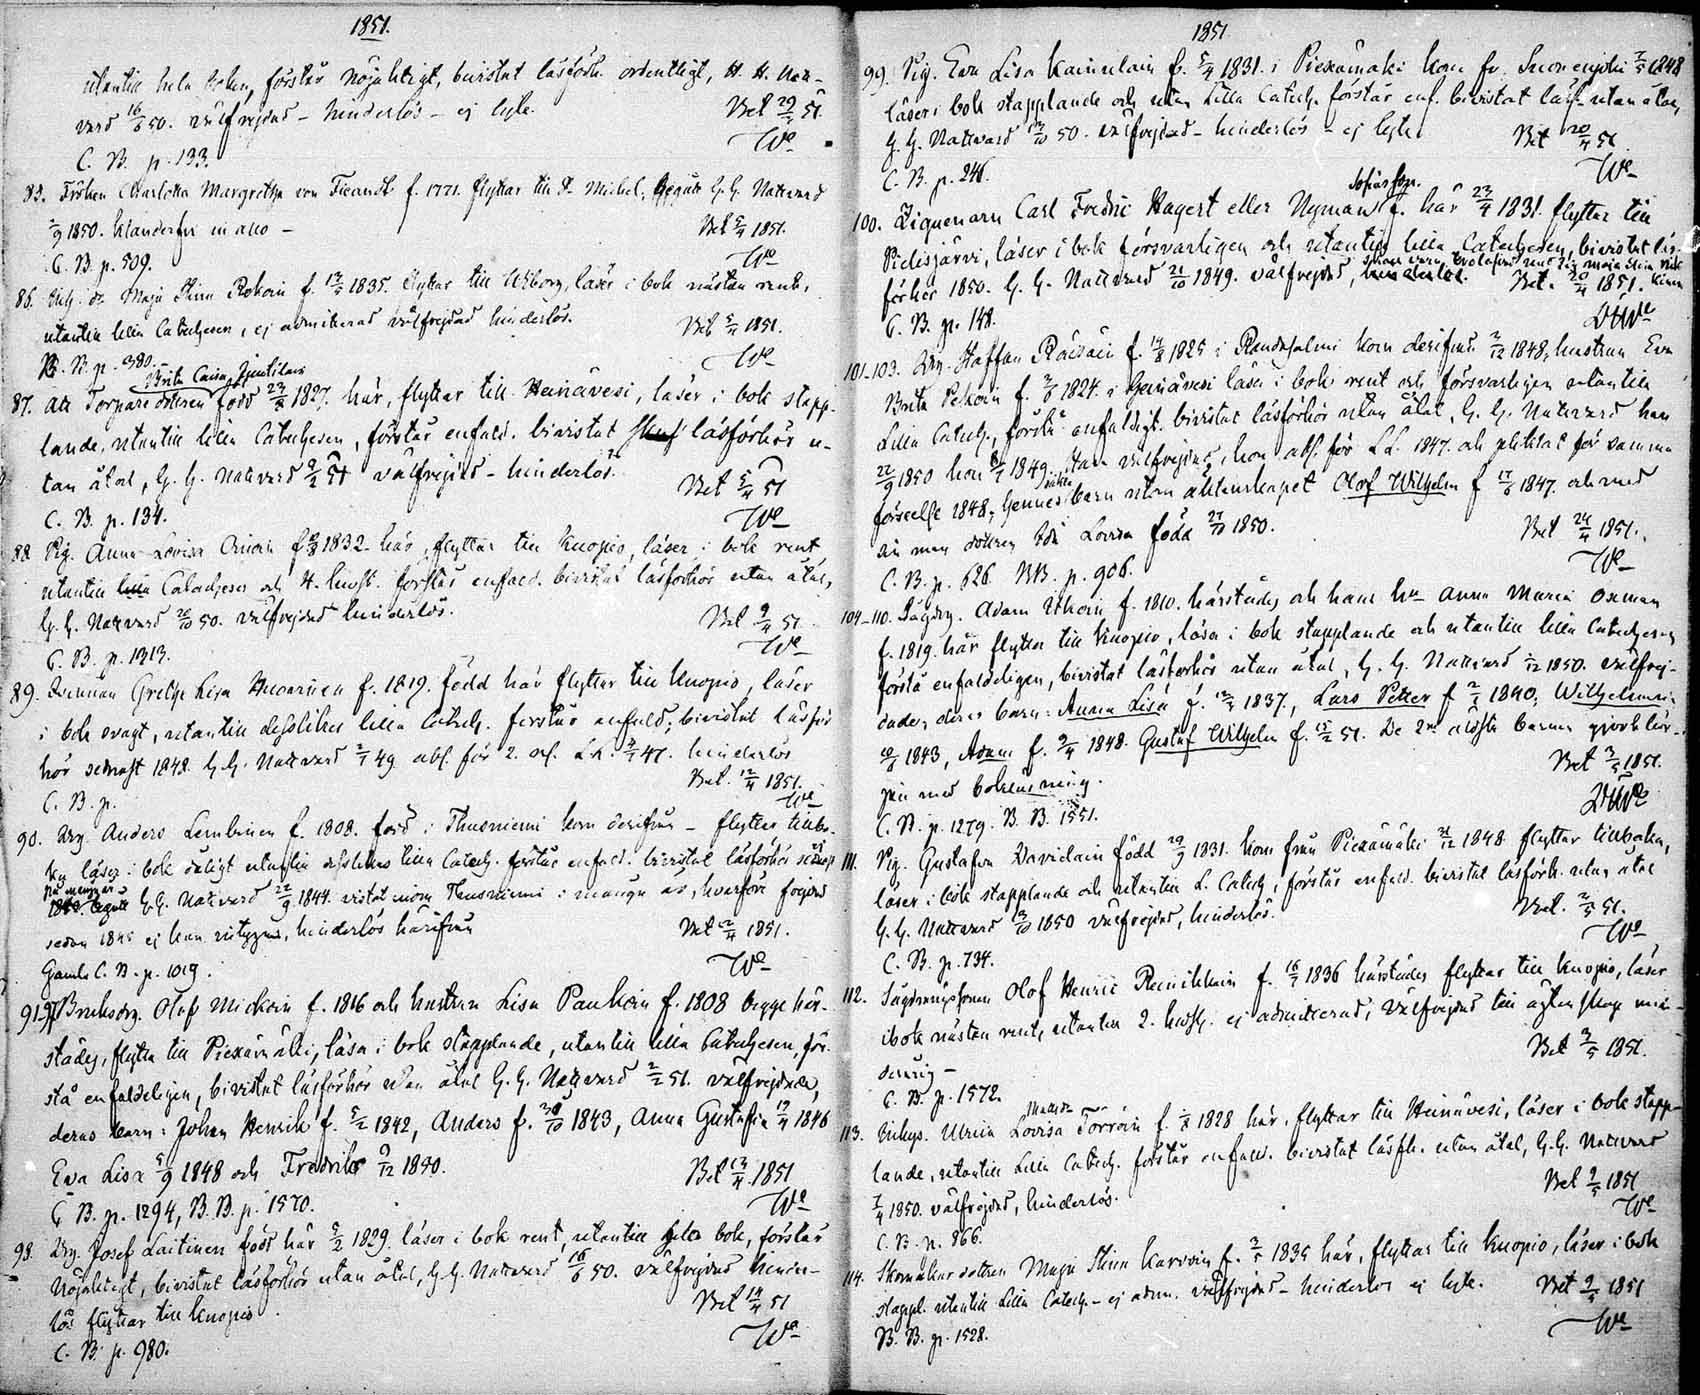 1851.
utantill hela boken, förstår nöjaktigt, bivistat läsförh. ordentligt, H. H. Natt-
vard 16/6 50. välfrejdad - hinderlös - ej lyte.
Bet 29/3 51.
C. B. p. 133.
Fröken Charlotta Margretha von Fieandt f. 1771. flyttar till St Michel, begått H. H. Nattvard
/9 1850. klanderfri in allo -
Bet 5/4 1851.
C. B. p. 509.
86. Maja Stina f. 1835. flyttar till Wiborg, läser i bok nästan rent,
utantill lilla Catechesen, ej admitterad välfrejdad hinderlös.
Bet 5/4 1851.
B. B. p. 380.
Brita Caisa
87. Torpare dottren född 23/3 1827. här, flyttar till Heinävesi, läser i bok stapp-
lande, utantill lilla Catechesen, förstår enfald. bivistat läsförhör u-
tan åtal, H. H. Nattvard 9/2 51 välfrejdad - hinderlös.
Bet 5/4 51
C. B. p. 134.
88 Pig. Anna Lovisa f. 1832 här, flyttar till Kuopio, läser i bok rent
utantill Catechesen och H. förstår enfald. bivistat läsförhör utan åtal,
H. H. Nattvard 20/10 50. välfrejdad hinderlös.
Bet 9/4 51.
C. B. p. 1313.
89. Gretha Lisa f. 1819. född här flyttar till Kuopio, läser
i bok svagt, utantill dessliken lilla Catech. förstår enfald; bivistat läsför
hör sednast 1848. H. H. Nattvard 49 abs. för 2. 47. hinderlös
Bet. 12/4 1851.
C. B. p.
90. Drg. Anders Lembinen f. 1808. född i Thusniemi kom derifrån - flyttar tillba-
ka läser i bok dåligt utantill dessliken lilla Catech. förstår enfald. bivistat läsförhör
H. H. Nattvard 22/9 1844. vistat inom Thusniemi i många år, hvarföre frejd
sedan 1845 ej kan intygas, hinderlös härifrån
Bet 12/4 1851.
Gamla C. B. p. 1019.
Olof Mickoin f. 1816 och hustrun Lisa Paukoin f. 1808 begge här-
städes, flytta till Piexämäki, läsa i bok stapplande, utantill lilla Catechesen, för-
stå enfaldeligen, bivistat läsförhör utan åtal H. H. Nattvard 2/2 51. välfrejdade,
deras barn: Johan Henrik f. 5/2 1842, Anders f. 30/10 1843, Anna Gustafva 19/4 1846
Eva Lisa 5/9 1848 och Fredrika 9/12 1850.
Bet 12/4 1851
C. B. p. 1294, B. B. p. 1570.
98. Drg. Josef Laitinen född här 5/2 1829. läser i bok rent, utantill hela bok, förstår
nöjaktigt, bivistat läsförhör utan åtal, H. H. Nattvard 16/6 50. välfrejdad hinder-
lös flyttar till Kuopio.
Bet 14/4 51
C. B. p. 980.
1851
99. Pig. Eva Lisa Kainulain f. 5/4 1831. i Piexämäki kom fr. Suonenjoki 7/5 1848
läser i bok stapplande och utan Lilla Catech. förstår enf. bivistat läsf. utan åtal,
H. H. Nattvard 13/10 50. välfrejdad - hinderlös - ej lyte.
Bet 20/4 51.
C. B. p. 246.
100. Ziguenaren Carl Fredric Hagert eller Nyman f. här 23/4 1831. flyttar till
Pielisjärvi, läser i bok försvarligen och utantill lilla Catechesen, bivistat läs-
förhör 1850. H. H. Nattvard 21/10 1849. välfrejdad,
Bet. 20/4 1851.
C. B. p. 148.
101-103. Drg. Staffan Räisäin f. 14/8 1825 i Randasalmi kom derifrån 2/12 1848, hustrun Eva
Brita Pekoin f. 1824. i Heinävesi läsa i bok rent och försvarligen utantill
Lilla Catech., förstå enfaldigt. bivistat läsförhör utan åtal, H. H. Nattvard han
22/9 1850 hon 1849. han välfrejdad, hon abs. för L. L. 1847. och pliktat för samma
förseelse 1848; hennes barn utom äktenskapet Olof Wilhelm f 17/6 1847. och med
sin man dottren Ida Lovisa född 27/10 1850.
Bet 24/4 1851.
C. B. p. 626. B.B. p. 906.
104-110. Adam f. 1810. härstädes och hans hu Anna Maria Oxman
f. 1819. här flytta till Kuopio, läsa i bok stapplande och utantill lilla Catechesen
förstå enfaldeligen, bivistat läsförhör utan åtal, H. H. Nattvard /12 1850. välfrej-
dade, deras barn: Anna Lisa f. 1837, Lars Petter f 1840; Wilhelmina
1843, Adam f. 9/4 1848. Gustaf Wilhelm f. 15/2 51. De 2ne äldsta barnen gjort bör-
jan med bokläsning.
Bet 3/5 1851.
C. B. p. 1279. B. B. 1551.
111. Pig. Gustafva Davidain född 29/9 1831. kom från Piexämäki 31/12 1848 flyttar tillbaka,
läser i bok stapplande och utantill L. Catech, förstår enfald. bivistat läsförh. utan åtal
H. H. Nattvard 13/10 1850 välfrejdad, hinderlös.
Bet. 2/5 51.
C. B. p. 734.
112. Olof Henric Reinikkain f. 16/7 1836 härstädes flyttar till Kuopio, läser
i bok nästan rent, utantill 2. ej admitterad, välfrejdad till äktenskap min-
derårig -
Bet 3/5 1851.
C. B. p. 1572.
113. Ulrica Lovisa Törröin f. 1828 här, flyttar till Heinävesi, läser i bok stapp-
lande, utantill Lilla Catech. förstår enfald. bivistat läsfh. utan åtal, H. H. Nattvard
7/4 1850. välfrejdad, hinderlös.
Bet 9/5 1851
C. B. p. 866.
114. Skomakar dottren Maja Stina f. 3/5 1835 här, flyttar till Kuopio, läser i bok
stappl. utantill Lilla Catech. - ej adm. välfrejdad - hinderlös ej lyte.
Bet 9/5 1851
B. B. p. 1528.